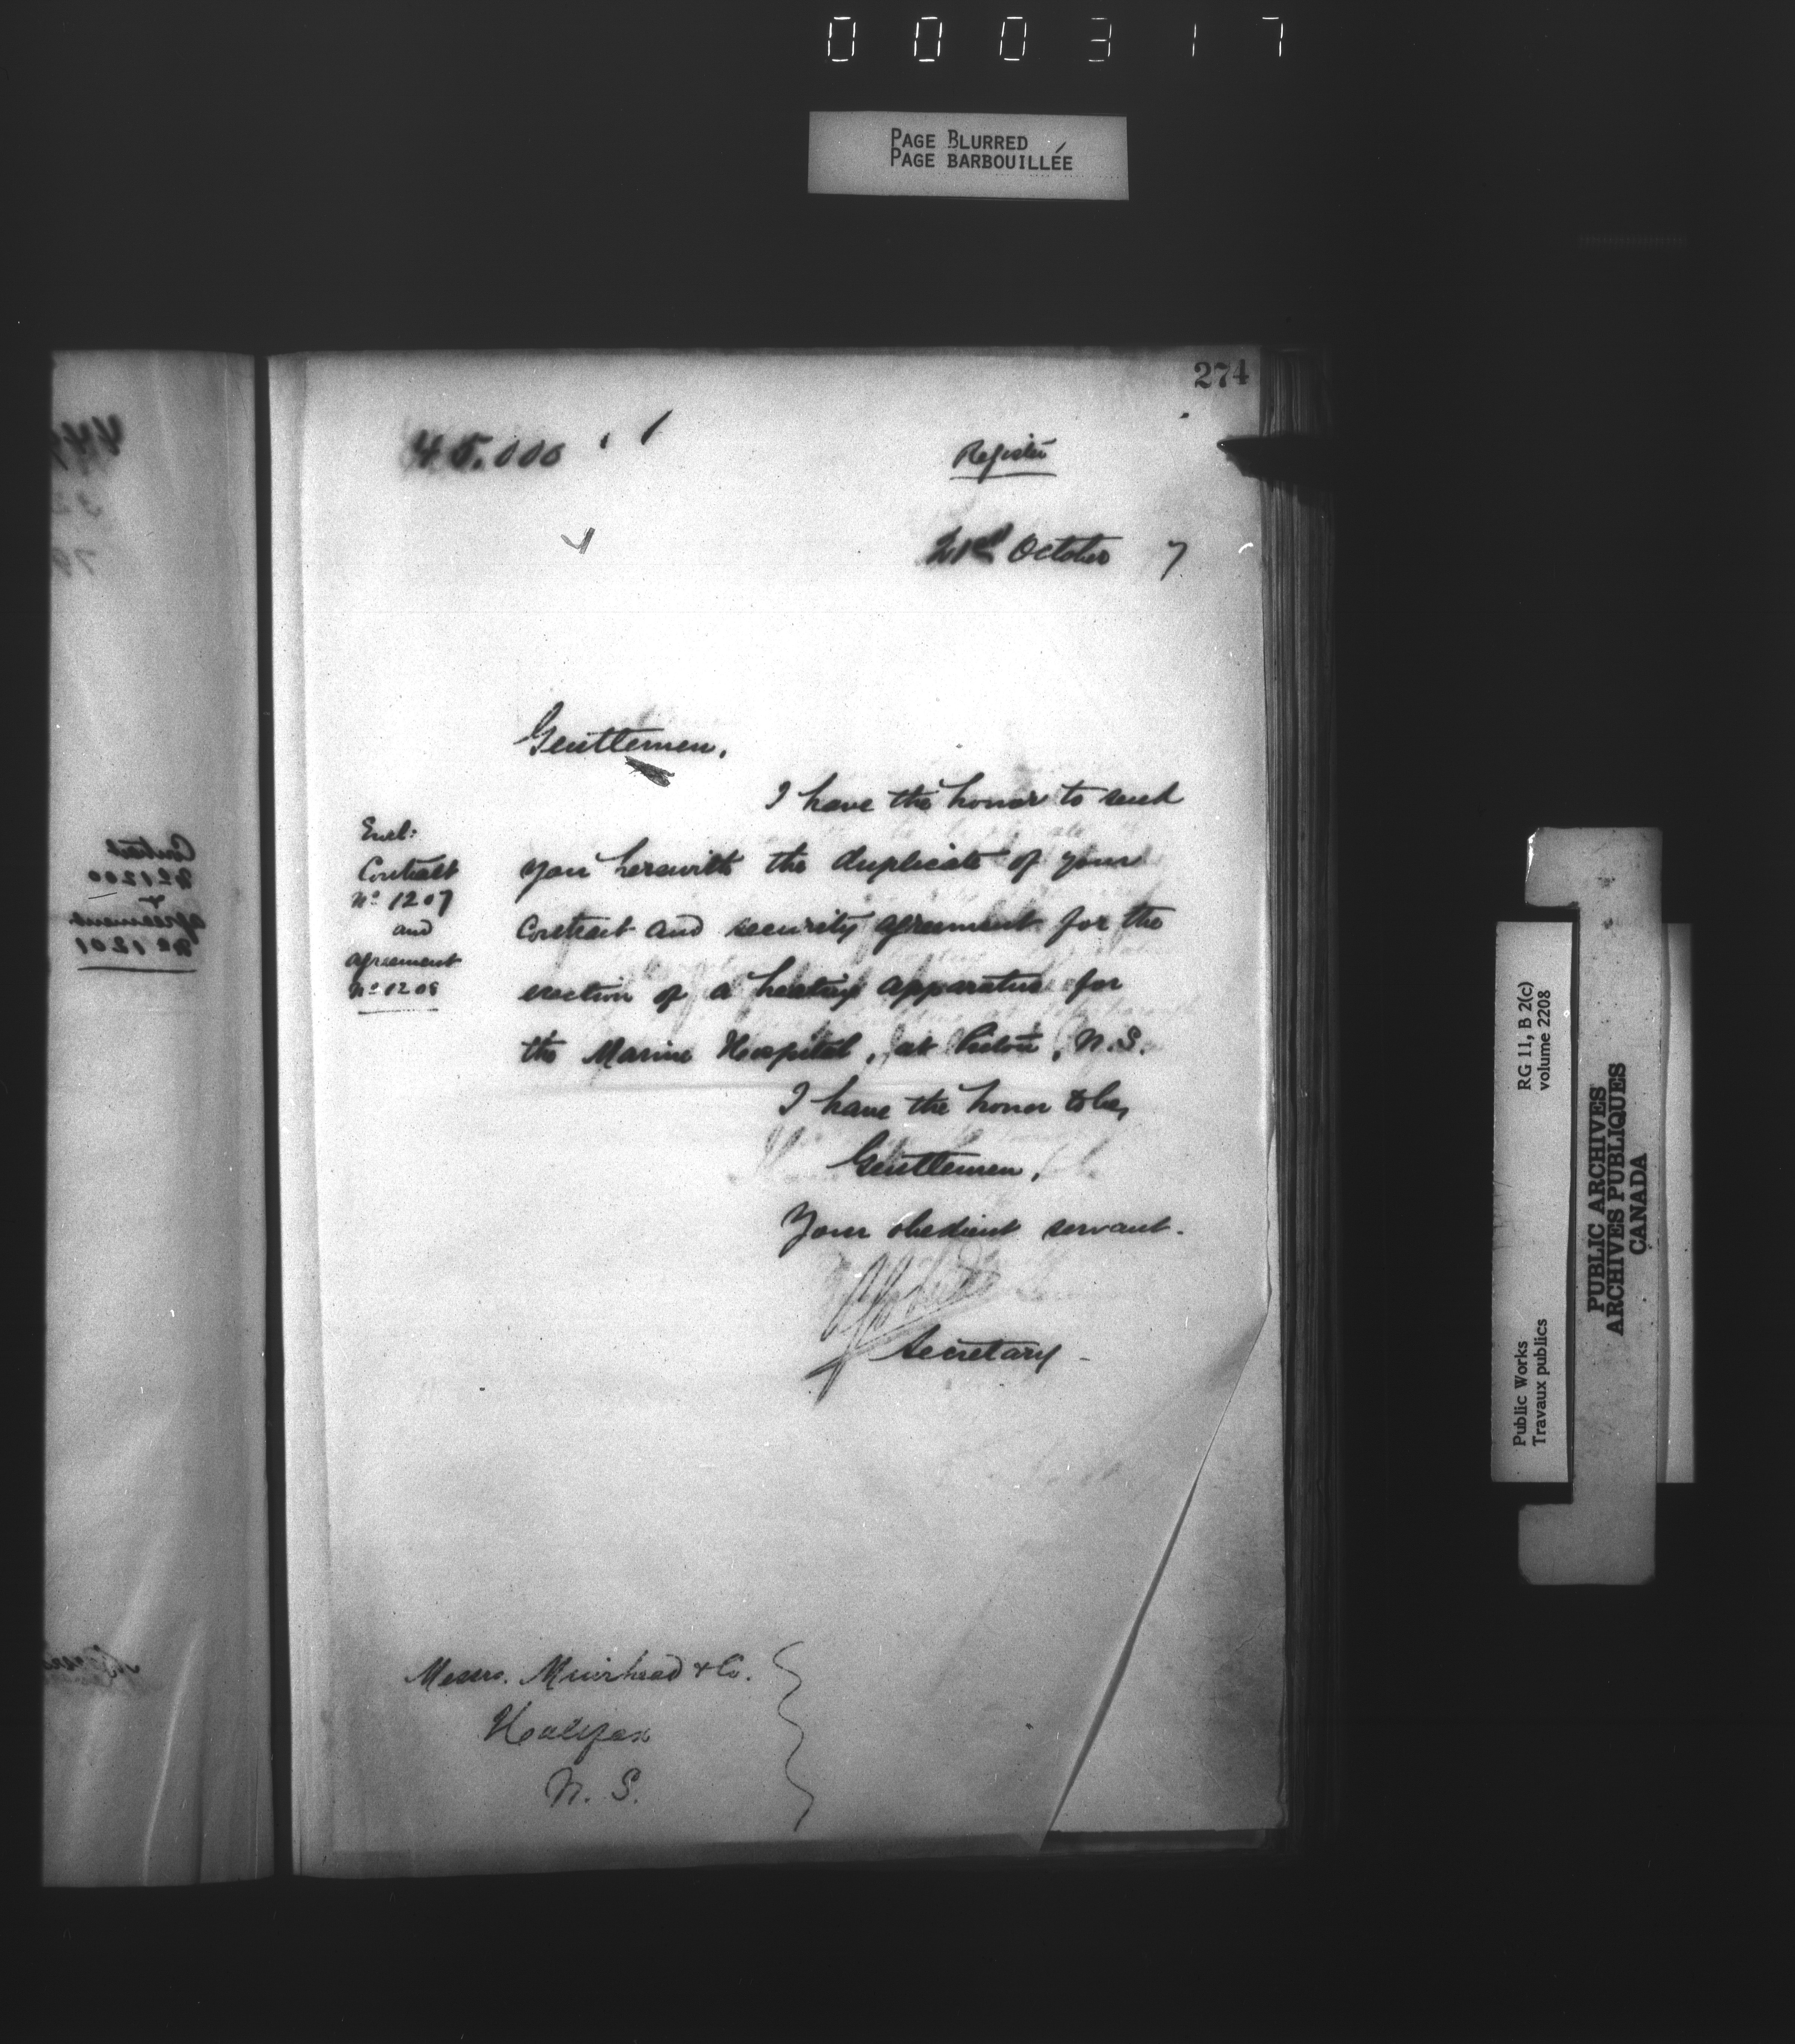 000317
PAGE BLURRED
PAGE BARBOUILLÉE
274
45.000
Register
21st October 7
Gentlemen,
I have the honor to send
you herewith the duplicate of your
contract and security agreement for the
erection of a heating apparatus for
the Marine Hospital, at Pictou, N.S.
Encl:
Contract
No 1207
and
agreement
No 1208
I have the honor to be,
Gentlemen,
Your obedient servant.
Secretary
Messrs. Muirhead & Co.
Halifax
N. S.
Contract
No 1200
&
agreement
No 1201
RG 11, B 2(c)
volume 2208
Public Works
Travaux publics
PUBLIC ARCHIVES
ARCHIVES PUBLIQUES
CANADA